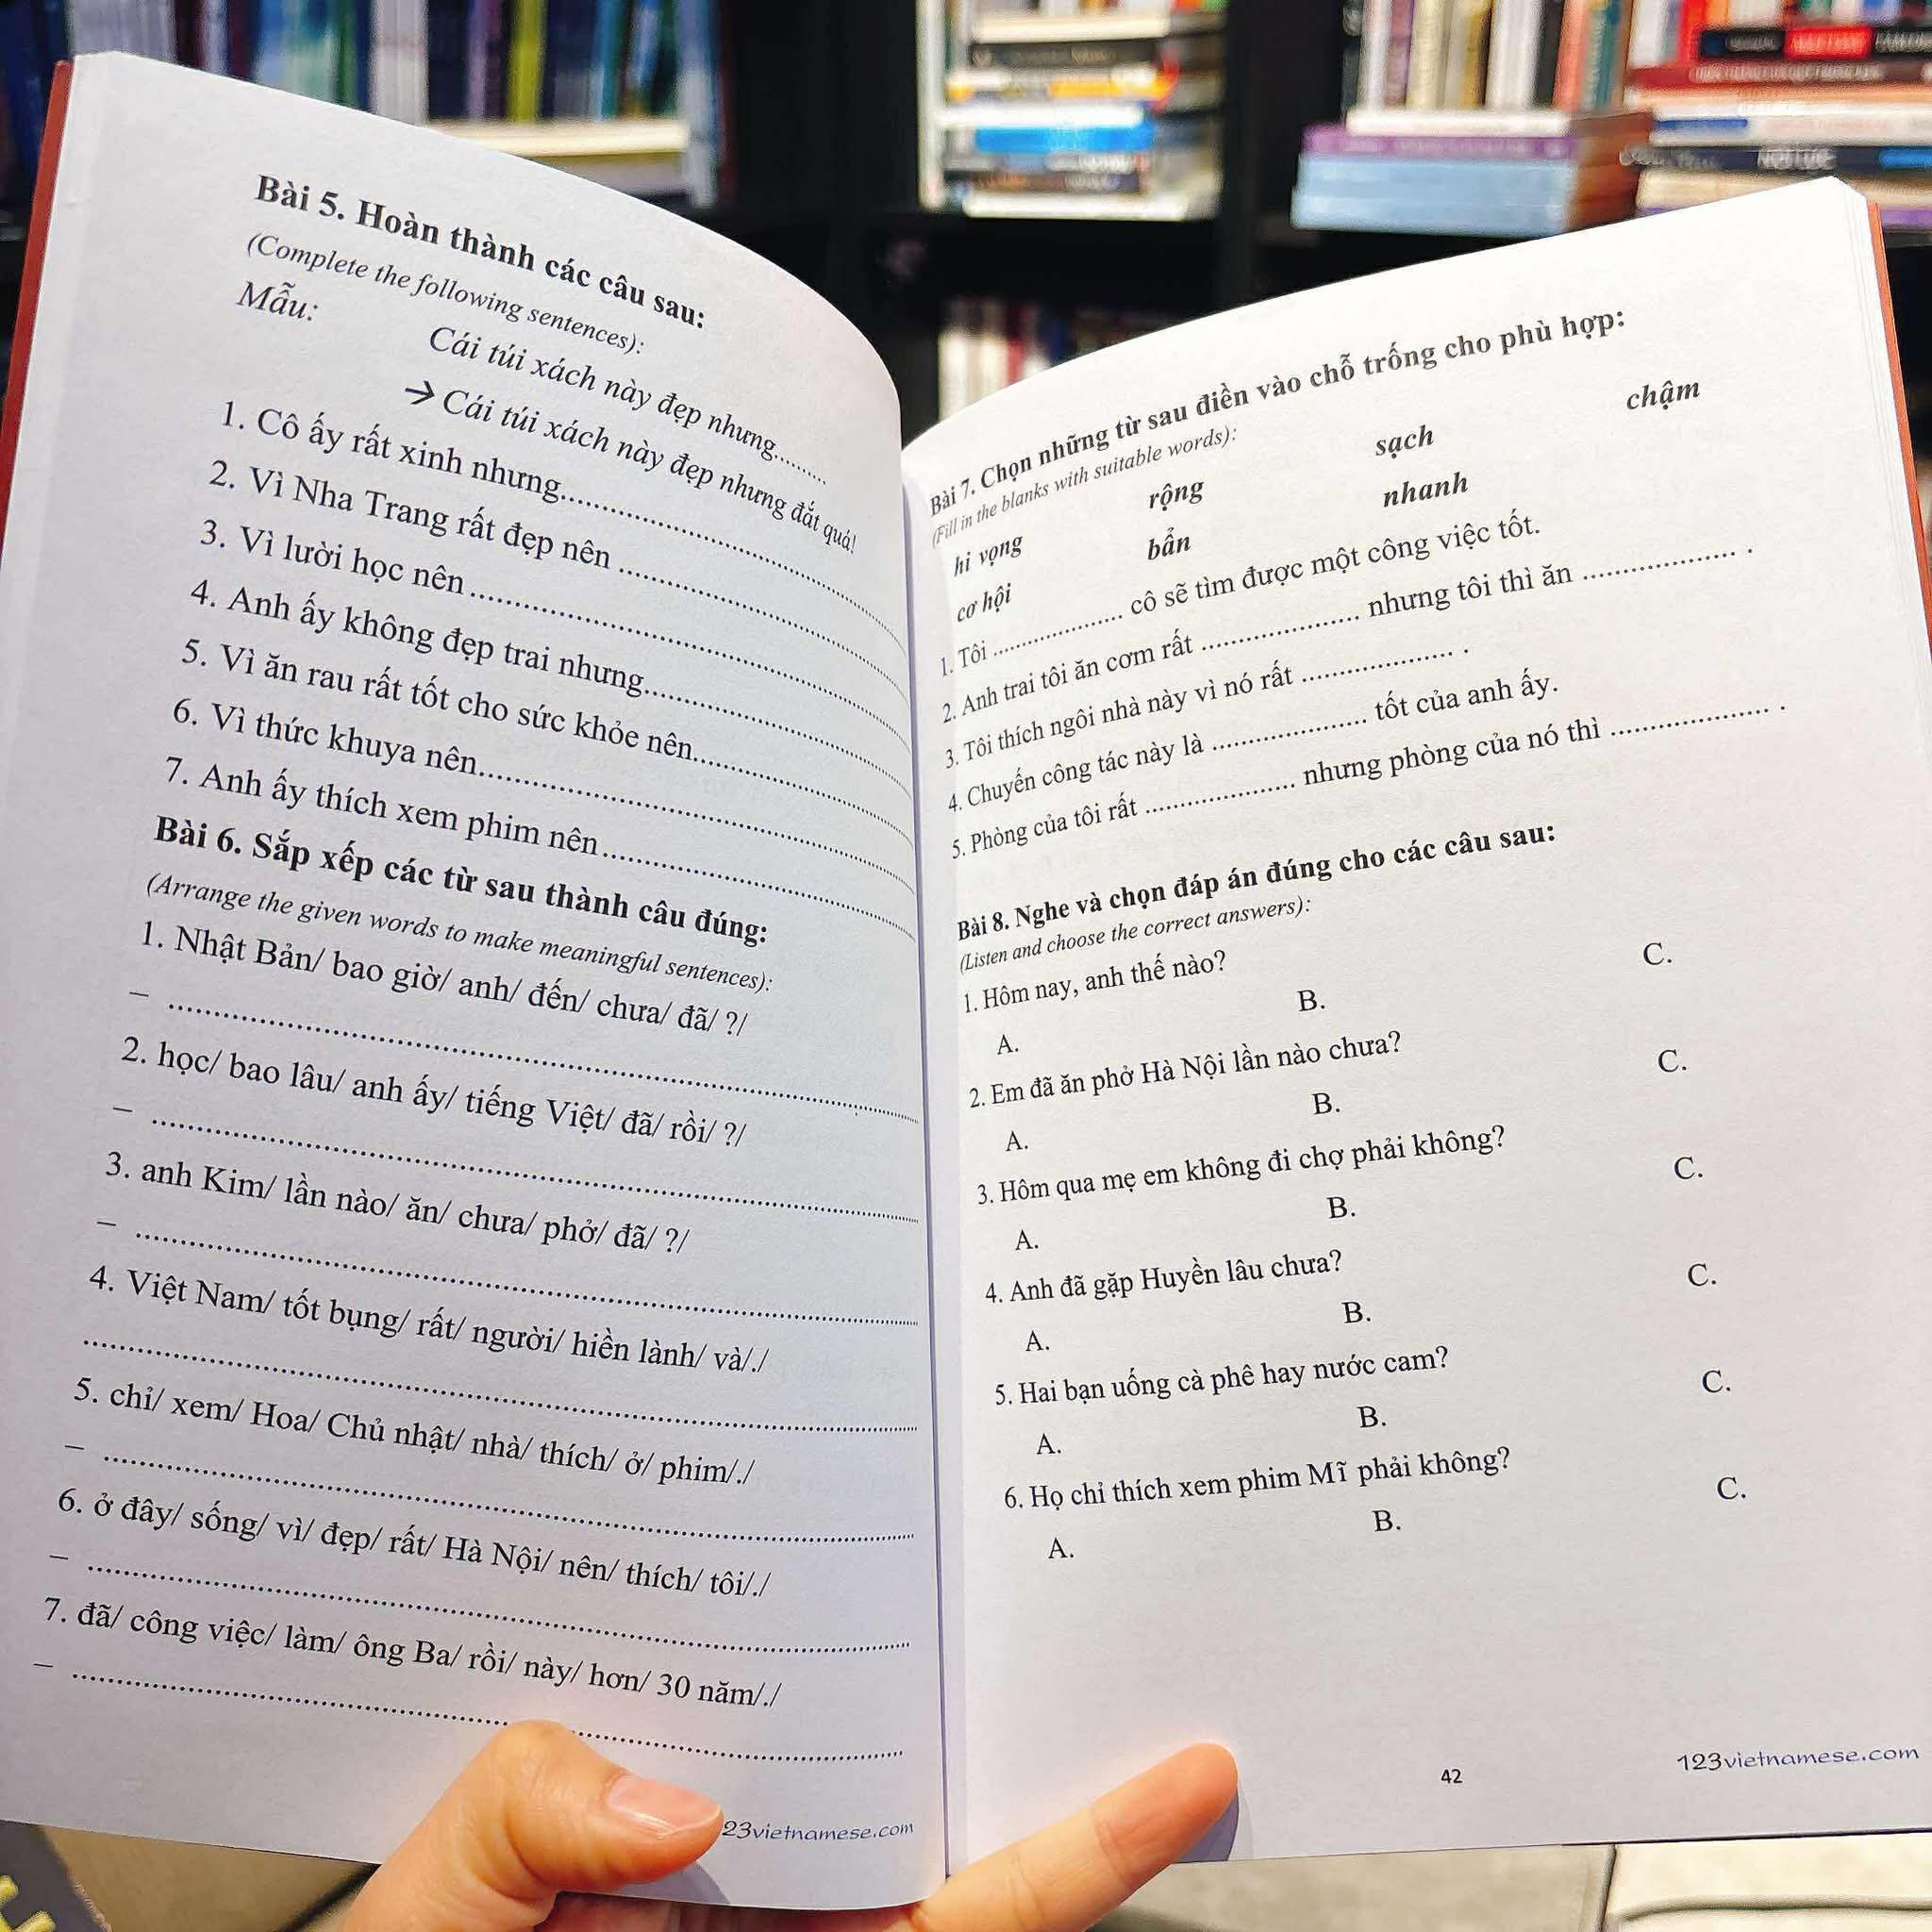 Bài 5. Hoàn thành các câu sau:
(Complete the following sentences):
Mẫu:
Cái túi xách này đẹp nhưng.........
→ Cái túi xách này đẹp nhưng đắt quá!
1. Cô ấy rất xinh nhưng........................................
2. Vì Nha Trang rất đẹp nên ........................................
3. Vì lười học nên ........................................
4. Anh ấy không đẹp trai nhưng........................................
5. Vì ăn rau rất tốt cho sức khỏe nên........................................
6. Vì thức khuya nên........................................
7. Anh ấy thích xem phim nên........................................
Bài 6. Sắp xếp các từ sau thành câu đúng:
(Arrange the given words to make meaningful sentences):
1. Nhật Bản/ bao giờ/ anh/ đến/ chưa/ đã/ ?/
– ........................................
2. học/ bao lâu/ anh ấy/ tiếng Việt/ đã/ rồi/ ?/
– ........................................
3. anh Kim/ lần nào/ ăn/ chưa/ phở/ đã/ ?/
– ........................................
4. Việt Nam/ tốt bụng/ rất/ người/ hiền lành/ và/./
........................................
5. chỉ/ xem/ Hoa/ Chủ nhật/ nhà/ thích/ ở/ phim/./
– ........................................
6. ở đây/ sống/ vì/ đẹp/ rất/ Hà Nội/ nên/ thích/ tôi/./
– ........................................
7. đã/ công việc/ làm/ ông Ba/ rồi/ này/ hơn/ 30 năm/./
– ........................................
23vietnamese.com
Bài 7. Chọn những từ sau điền vào chỗ trống cho phù hợp:
(Fill in the blanks with suitable words):
hi vọng rộng sạch chậm
cơ hội bẩn nhanh
1. Tôi .................... cô sẽ tìm được một công việc tốt.
2. Anh trai tôi ăn cơm rất .................... nhưng tôi thì ăn .................... .
3. Tôi thích ngôi nhà này vì nó rất .................... .
4. Chuyến công tác này là .................... tốt của anh ấy.
5. Phòng của tôi rất .................... nhưng phòng của nó thì .................... .
Bài 8. Nghe và chọn đáp án đúng cho các câu sau:
(Listen and choose the correct answers):
1. Hôm nay, anh thế nào?
A. B. C.
2. Em đã ăn phở Hà Nội lần nào chưa?
A. B. C.
3. Hôm qua mẹ em không đi chợ phải không?
A. B. C.
4. Anh đã gặp Huyền lâu chưa?
A. B. C.
5. Hai bạn uống cà phê hay nước cam?
A. B. C.
6. Họ chỉ thích xem phim Mĩ phải không?
A. B. C.
42
123vietnamese.com